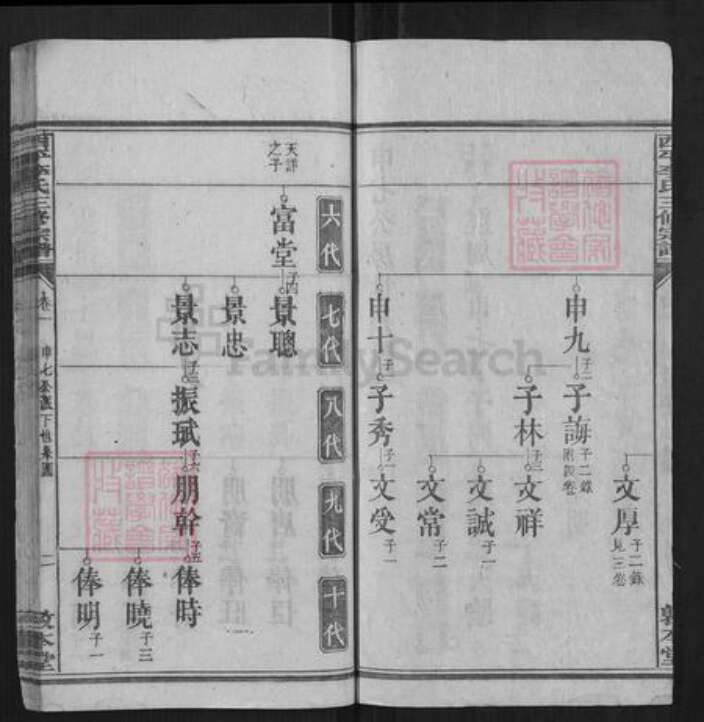 西平李氏三修宗譜
敦本堂
文厚 子二錄見三卷
申九 子二
子誨 子二錄附四卷
子林 子三
文祥
文誠 子一
文常 子二
申十 子一
子秀 子一
文受 子一
六代
七代
八代
九代
十代
天詳之子
富堂 子四
景聰
景忠
景志
振珷 子六
朋幹 子五
俸時
俸曉 子三
俸明 子一
西平李氏三修宗譜
卷一
申七公派下世系圖
二
敦本堂
FamilySearch